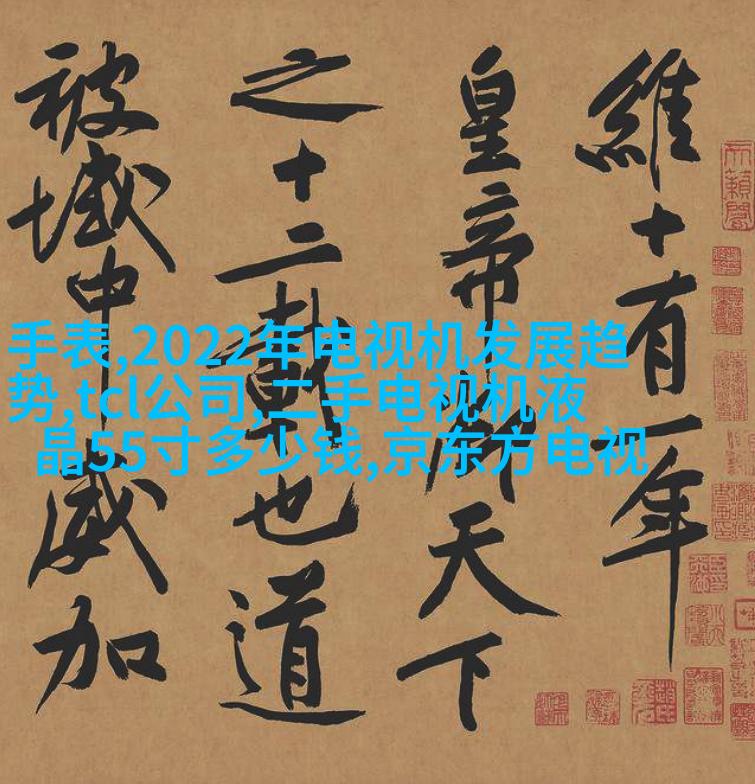 維十有一年
皇帝御天下
之十二載也道
被域中威加
手表,2022年电视机发展趋
势,tcl公司,二手电视机液
晶55寸多少钱,京东方电视